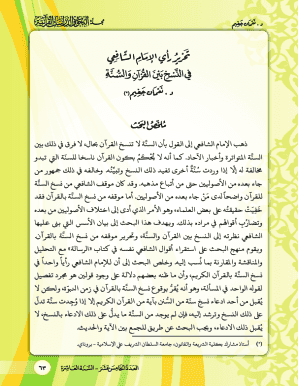 د. نعمان جغيم
مجلة البحوث والدراسات القرآنية
تحرير رأي الإمام الشافعي
في النسخ بين القرآن والسنة
د. نعمان جغيم (*)
ملخص البحث
ذهب الإمام الشافعي إلى القول بأن السنة لا تنسخ القرآن بحال، لا فرق في ذلك بين
السنة المتواترة وأخبار الآحاد. كما أنه لا يُحْكَمُ بكون القرآن ناسخا للسنة التي تبدو
مخالفة له إلا إذا وردت سُنَّة أخرى تفيد ذلك النسخ وتبيِّنُه. وخالفه في ذلك جمهور من
جاء بعده من الأصوليين حتى من أتباع مذهبه. وقد كان موقف الشافعي من نسخ السنة
للقرآن واضحاً لدى مَنْ جاء بعده من الأصوليين. أما موقفه من نسخ السنة بالقرآن فقد
خَفِيَتْ حقيقته على بعض العلماء، وهو الأمر الذي أدى إلى اختلاف الأصوليين من بعده
وتضارب أقوالهم في مراده بذلك. ويهدف هذا البحث إلى بيان الأسس التي بنى عليها
الشافعي نظرته إلى النسخ بين القرآن والسنة، وتحرير موقفه من نسخ السنة بالقرآن.
ويقوم منهج البحث على استقراء أقوال الشافعي نفسه في كتاب «الرسالة» مع التحليل
والمناقشة والمقارنة بما نُسب إليه. وخلص البحث إلى أن للإمام الشافعي رأياً واحداً في
نسخ السنة بالقرآن الكريم، وأن ما ظنه بعضهم دلالة على وجود قولين هو مجرد تفصيل
لقوله الواحد في المسألة، وهو أنه يُقرُّ بوقوع نسخ السنة بالقرآن في زمن النبوة، ولكن لا
يُقبل من أحد ادعاء نسخ سنة من السُّنن بآية من القرآن الكريم إلا إذا وُجدت سنة تدلُّ
على ذلك النسخ وترشد إليه، فإن لم يوجد من السنة ما يدلُّ على ذلك الادعاء بالنسخ، لا
يُقبل ذلك الادعاء، ويجب البحث عن طريق للجمع بين الآية والحديث.
(*) أستاذ مشارك بكلية الشريعة والقانون، جامعة السلطان الشريف علي الإسلامية - بروناي.
٦٣
السنة العاشرة